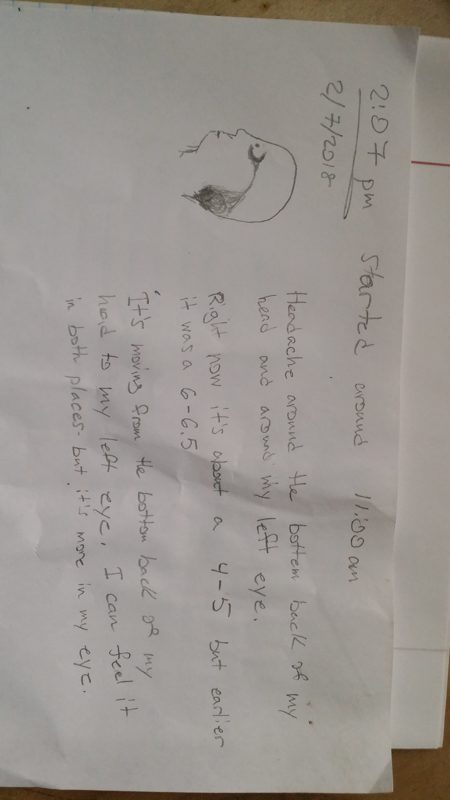 2:07 pm Started around 11:00 am
2/7/2018
Headache around the bottom back of my
head and around my left eye.
Right now it's about a 4-5 but earlier
it was a 6-6.5
It's moving from the bottom back of my
head to my left eye. I can feel it
in both places but it's more in my eye.